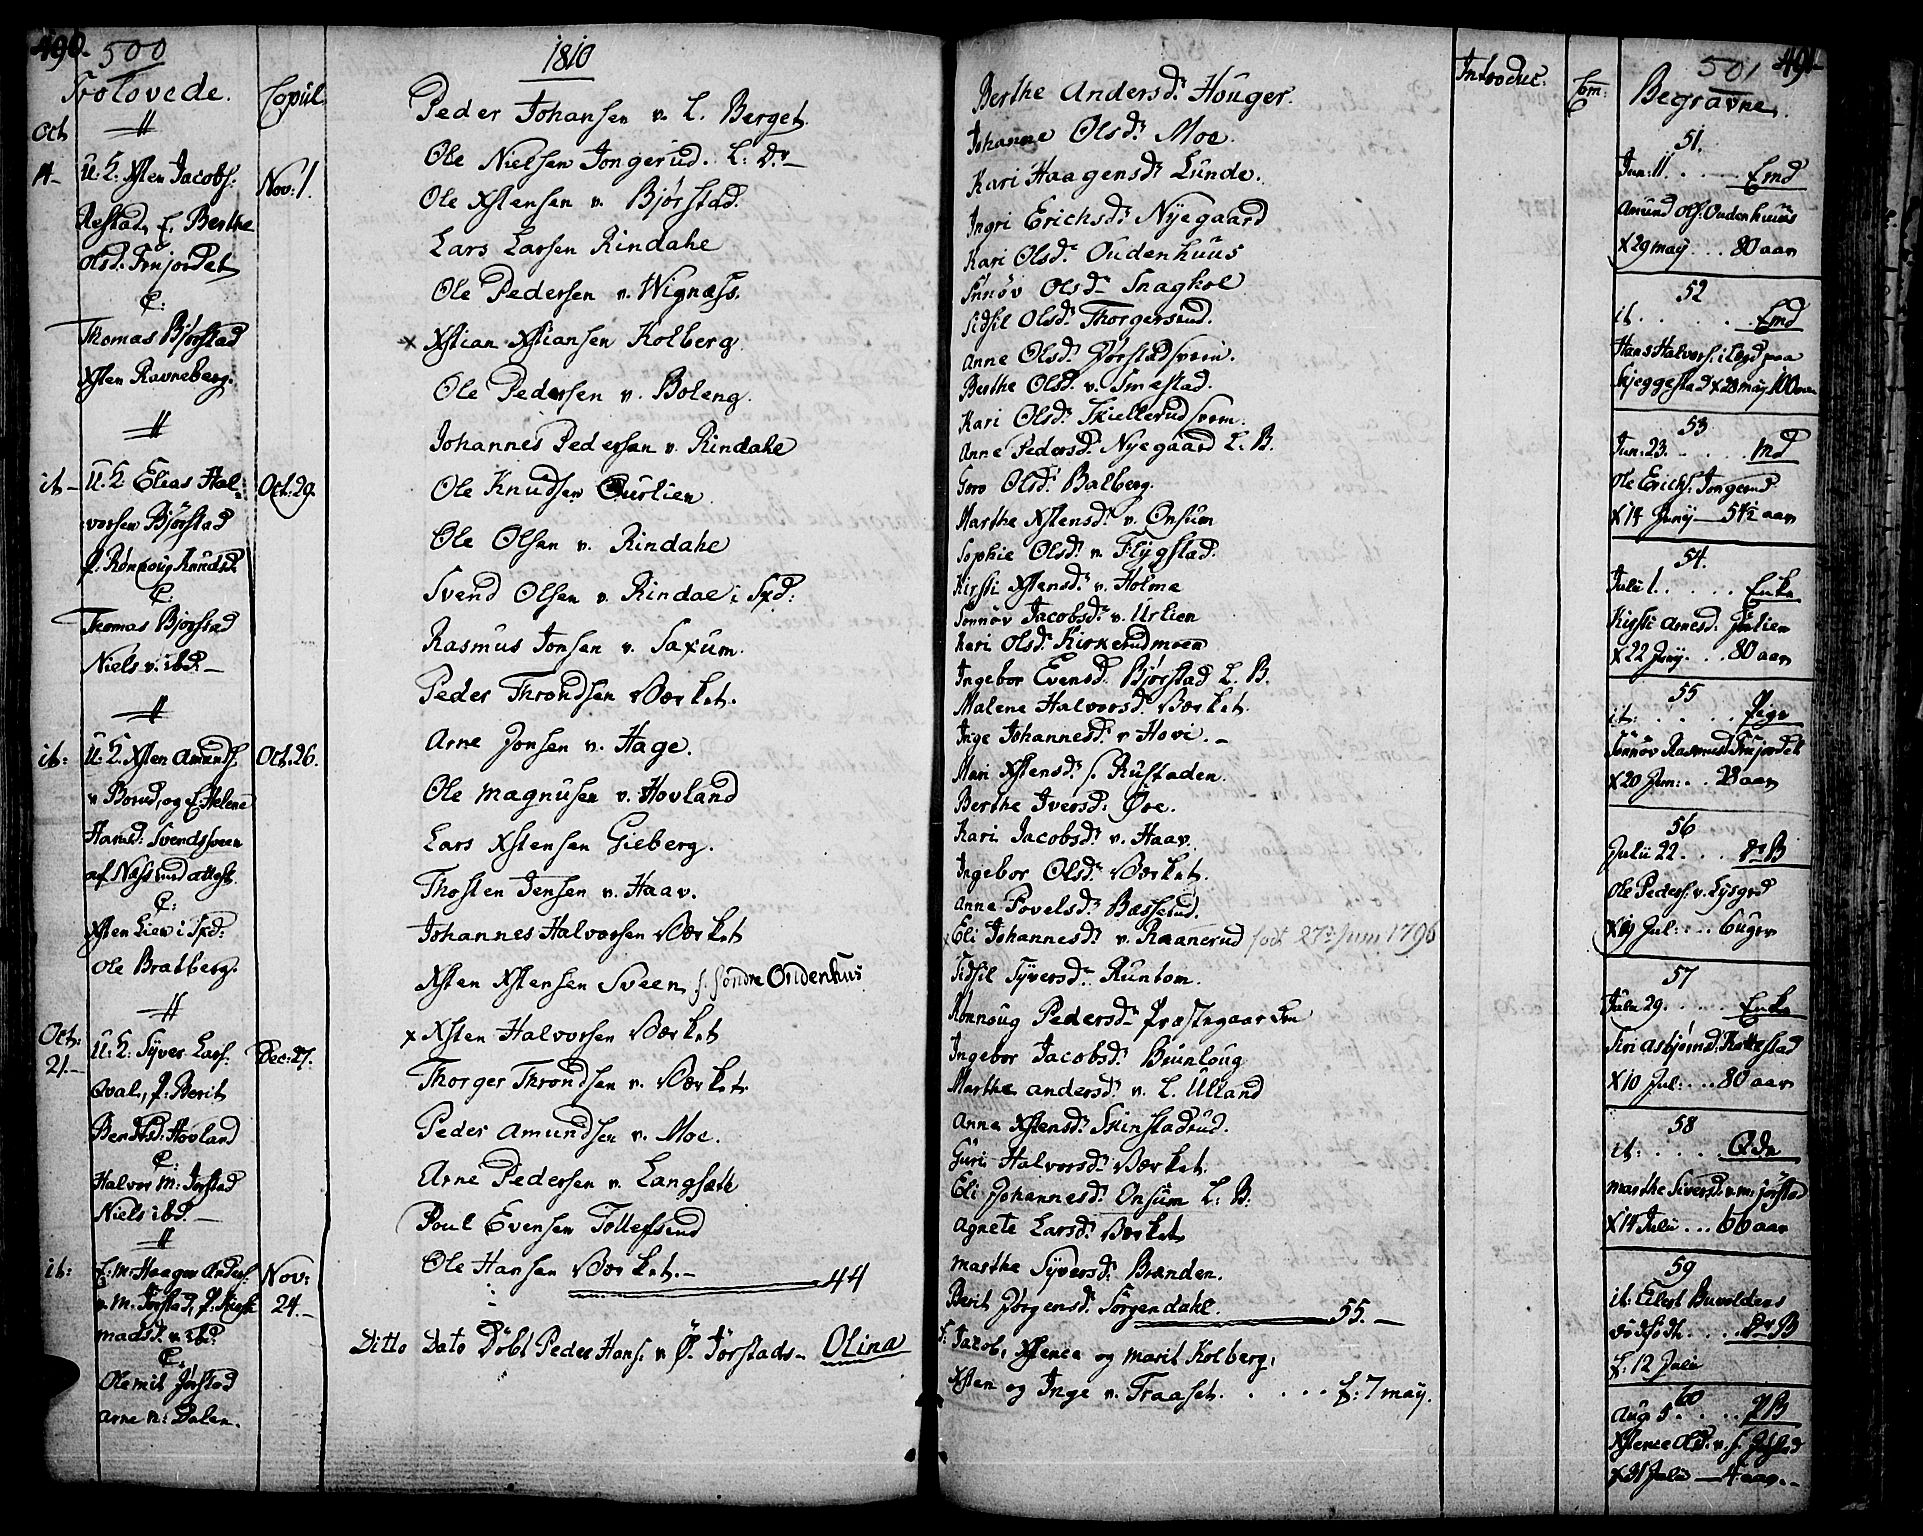 490. 500
Trolovede.
Copul.
Oct.
14- U. K: Xsten Jacobs:
Nov: 1.
Aestad, f. Berthe
Olsd: Frujordet
C:
Thomas Bjørstad
Xsten Ravneberg.
it- U. K Elias Hal-
Oct: 29.
vorsen Bjørstad
Thomas Bjørstad
Niels v. ibd. -
it: U: K. Xsten Amunds.
Oct: 26.
v Borud, og f. Helene
Hansd: Svendssveen
af Næss med attest.
C:
Xsten Lien i Fxd:
Ole Bratberg.
Oct: 21.- U: K: Syver Lars.
Dec: 27.
Qval, P. Berit
Berntsd: Hovland
C:
Halvor m: Jorstad
Niels ibd. -
it: f: M: Haagen Anders:
Nov: 24.-
v. M. Jorstad,
madsd. v. ibd:
C:
Ole mit Jørstad
Arne n: Dalen.
1810
Peder Johansen v. L. Berget.
Ole Nielsen Jongerud. L: D: -
Ole Xstensen v. Bjørstad.
Lars Larsen Rindahe
Ole Pedersen v. Wignæss.
x Xstian Xstiansen Kolberg.
Ole Pedersen v. Boleng.
Johannes Pedersen v. Rindahe
Ole Knudsen Ourlien.
Ole Olsen v. Rindahe
Svend Olsen v. Rindal i Fxd:
Rasmus Jonsen v. Saxum.
Peder Throndsen Værket.
Arne Jonsen v. Hage.
Ole Magnusen v. Hovland
Lars Xstensen Gieberg.
Thosten Jensen v. Haav.
Johannes Halvorsen Værket
Xsten Xstensen Sveen, f. søndre Oudenhus
x Xsten Halvorsen Værket
Thorger Throndsen v. Værket
Peder Amundsen v. Moe.
Arne Pedersen v. Langsæth
Poul Evensen Tollefsrud
Ole Hansen Værket. - 44
Ditto Dato Döbt Peder Hans: v Ø. Jorstads - Olina
Berthe Andersd: Houger.
Johanne Olsd: Moe.
Kari Haagensd: Lunde.
Ingri Erichsd: Nyegaard
Kari Olsd: Oudenhuus
Sinnöv Olsd: Snaghol
Sidsil Olsd: Thorgersrud.
Anne Olsd: Jørstadsveen.
Berthe Olsd. v. Smestad.
Kari Olsd: Skiellerudsveen.
Anne Pedersd: Nyegaard L. B.
Goro Olsd: Balberg.
Marthe Xstensd: v. Onsum
Sophie Olsd: v. Flygstad.
Kirsti Xstensd: v. Holme
Sinnöv Jacobsd: v. Urlien
Kari Olsd: Kirkerudmoen
Ingebor Evensd: Bjørstad L. B.
Malene Halvorsd: Værket.
Inge Johannesd: v Hovi. -
Mari Xstensd: f. Rustaden.
Berthe Iversd: Øre.
Kari Jacobsd: v. Haav.
Ingebor Olsd: Værket.
Anne Povelsd: Basserud.
x Eli Johannesd: v. Raanerud født 27de Juni 1796
Sidsil Syversd: Runtom.
Rønnoug Pedersd: Præstegaarden
Ingebor Jacobsd: Biunloug
Marthe Andersd: v. L. Ulland
Anne Xstensd: Skinstadrud.
Guri Halvorsd: Værket.
Eli Johannesd: Onsum L: B.
Agnete Larsd: Værket
Marthe Syversd: Brænden.
Berit Jörgensd: Sörgendahl. 55. -
Jacob, Xstence og Marit Kolberg,
Xsten og Inge v. Traaset. . . . . f: 7 may.
Introduc:
Com:
501 491
Begravne.
51.
Jun: 11. . . . Emd
Amund Ols: Oudenhuus
X 29 may . . . 80 aar
52
it. . . . . . Emd
Hans Halvors: i Legd paa
Skjeggestad X 28 may 100 aar
53
Jun. 23. . . . . Md
Ole Erichs: Jongerud
X 14 Junij - 54½ aar
54.
Julii 1. . . . . Enke
Kirsti Arnesd:
X 22 Junij . . 80 aar
55
it: . . . . . Pige
Sinnöv Rasmusd: Frujordet
X 20 Jun: . . 28 aar
56
Julii 22. . . . B
Ole Peders: v. Lysgrd
X 19 Jul: . . . 6 uger
57
Julii 29. . . . Enke
Siri Asbjørnd:
X 10 Jul: . . 80 aar
58
it: . . . . Qde
Marthe Siversd: v. m: Jørstad
X 14 Julii . . . 66 aar
59
it:
B
f: 12 Julii
60
Aug. 5. . . . PB
Xstence Olsd: v. f.
X 31 Julii - 4 aar. -